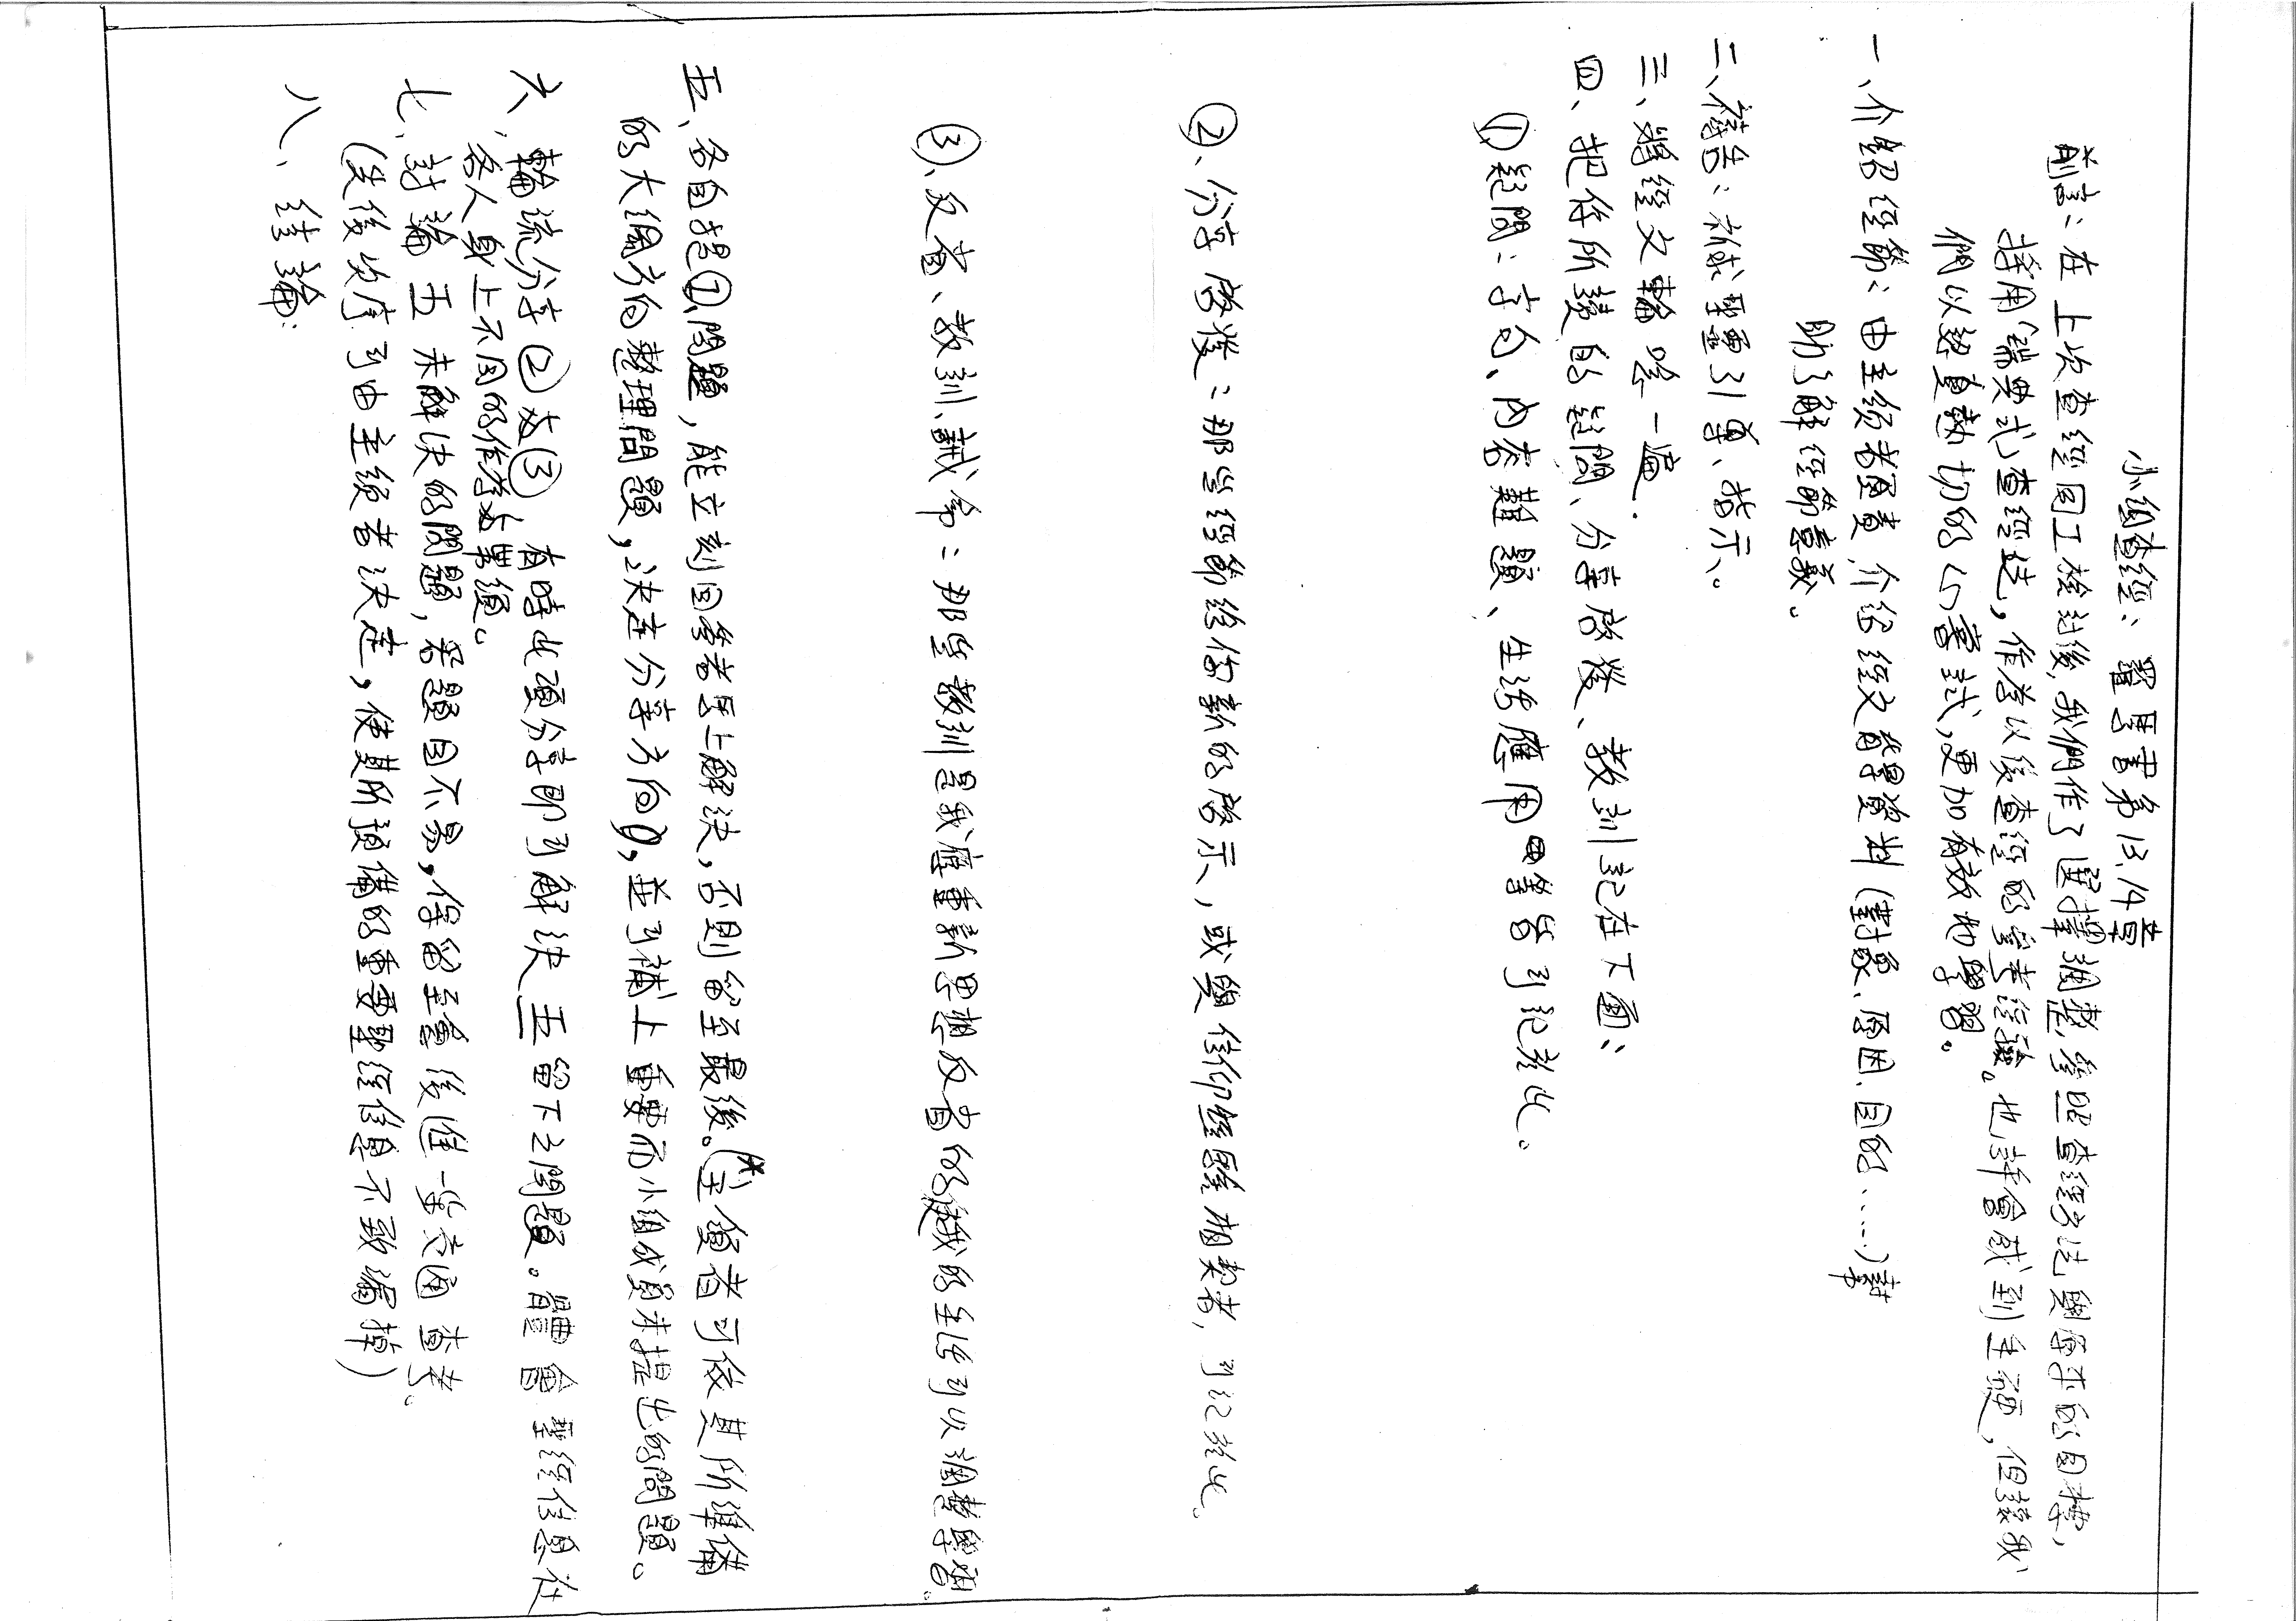 小組查經：羅馬書第13、14章
前言：在上次查經同工檢討後，我們作了選擇調整，參照查經方法與原來的目標，
採用「瑞典式」查經法，作為以後查經的寶貴經驗。也許會感到生硬，但讓我
們以認真熱切的心嘗試，更加有效地學習。
一、介紹經節：由主領者負責，介紹經文背景資料（對象、原因、目的……）幫
助了解經節意義。
二、禱告：祈求聖靈引導、指示。
三、將經文輪唸一遍.
四、把你所讀的疑問、分享啓發、教訓記在下面：
①疑問：字句、內容難題、生活應用 等皆可記於此。
②、分享啓發：那些經節給你新的啓示，或與信仰經驗相契者，可記於此。
③、反省、教訓、誡命：那些教訓是我應重新思想反省的 使我的生活可以調整學習。
五、各自提①問題，能立刻回答者馬上解決，否則留至最後。(*主領者可依其所準備
的大綱方向整理問題，決定分享方向)，並可補上重要而小組成員未提出的問題。
六、輪流分享②及③，有時此項分享即可解決五留下之問題。體會聖經信息在
各人身上不同的作為與帶領。
七、討論五未解決的問題，若題目不易，保留至會後進一步交通查考。
(先後次序可由主領者決定，使其所預備的重要聖經信息不致漏掉)
八、結論：